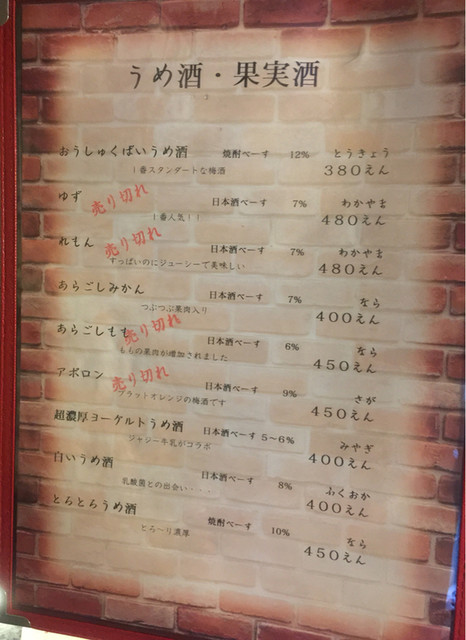 うめ酒・果実酒
おうしゅくばいうめ酒 焼酎べーす 12% とうきょう
1番スタンダートな梅酒 380えん
ゆず 売り切れ 日本酒べーす 7% わかやま
1番人気!! 480えん
れもん 売り切れ 日本酒べーす 7% わかやま
すっぱいのにジューシーで美味しい 480えん
あらごしみかん 日本酒べーす 7% なら
つぶつぶ果肉入り 400えん
あらごしもも 売り切れ 日本酒べーす 6% なら
ももの果肉が増加されました 450えん
アポロン 売り切れ 日本酒べーす 9% さが
ブラットオレンジの梅酒です 450えん
超濃厚ヨーグルトうめ酒 日本酒べーす 5~6% みやぎ
ジャジー牛乳がコラボ 400えん
白いうめ酒 日本酒べーす 8% ふくおか
乳酸菌との出会い・・・・ 400えん
とろとろうめ酒 焼酎べーす 10% なら
とろ~り濃厚 450えん